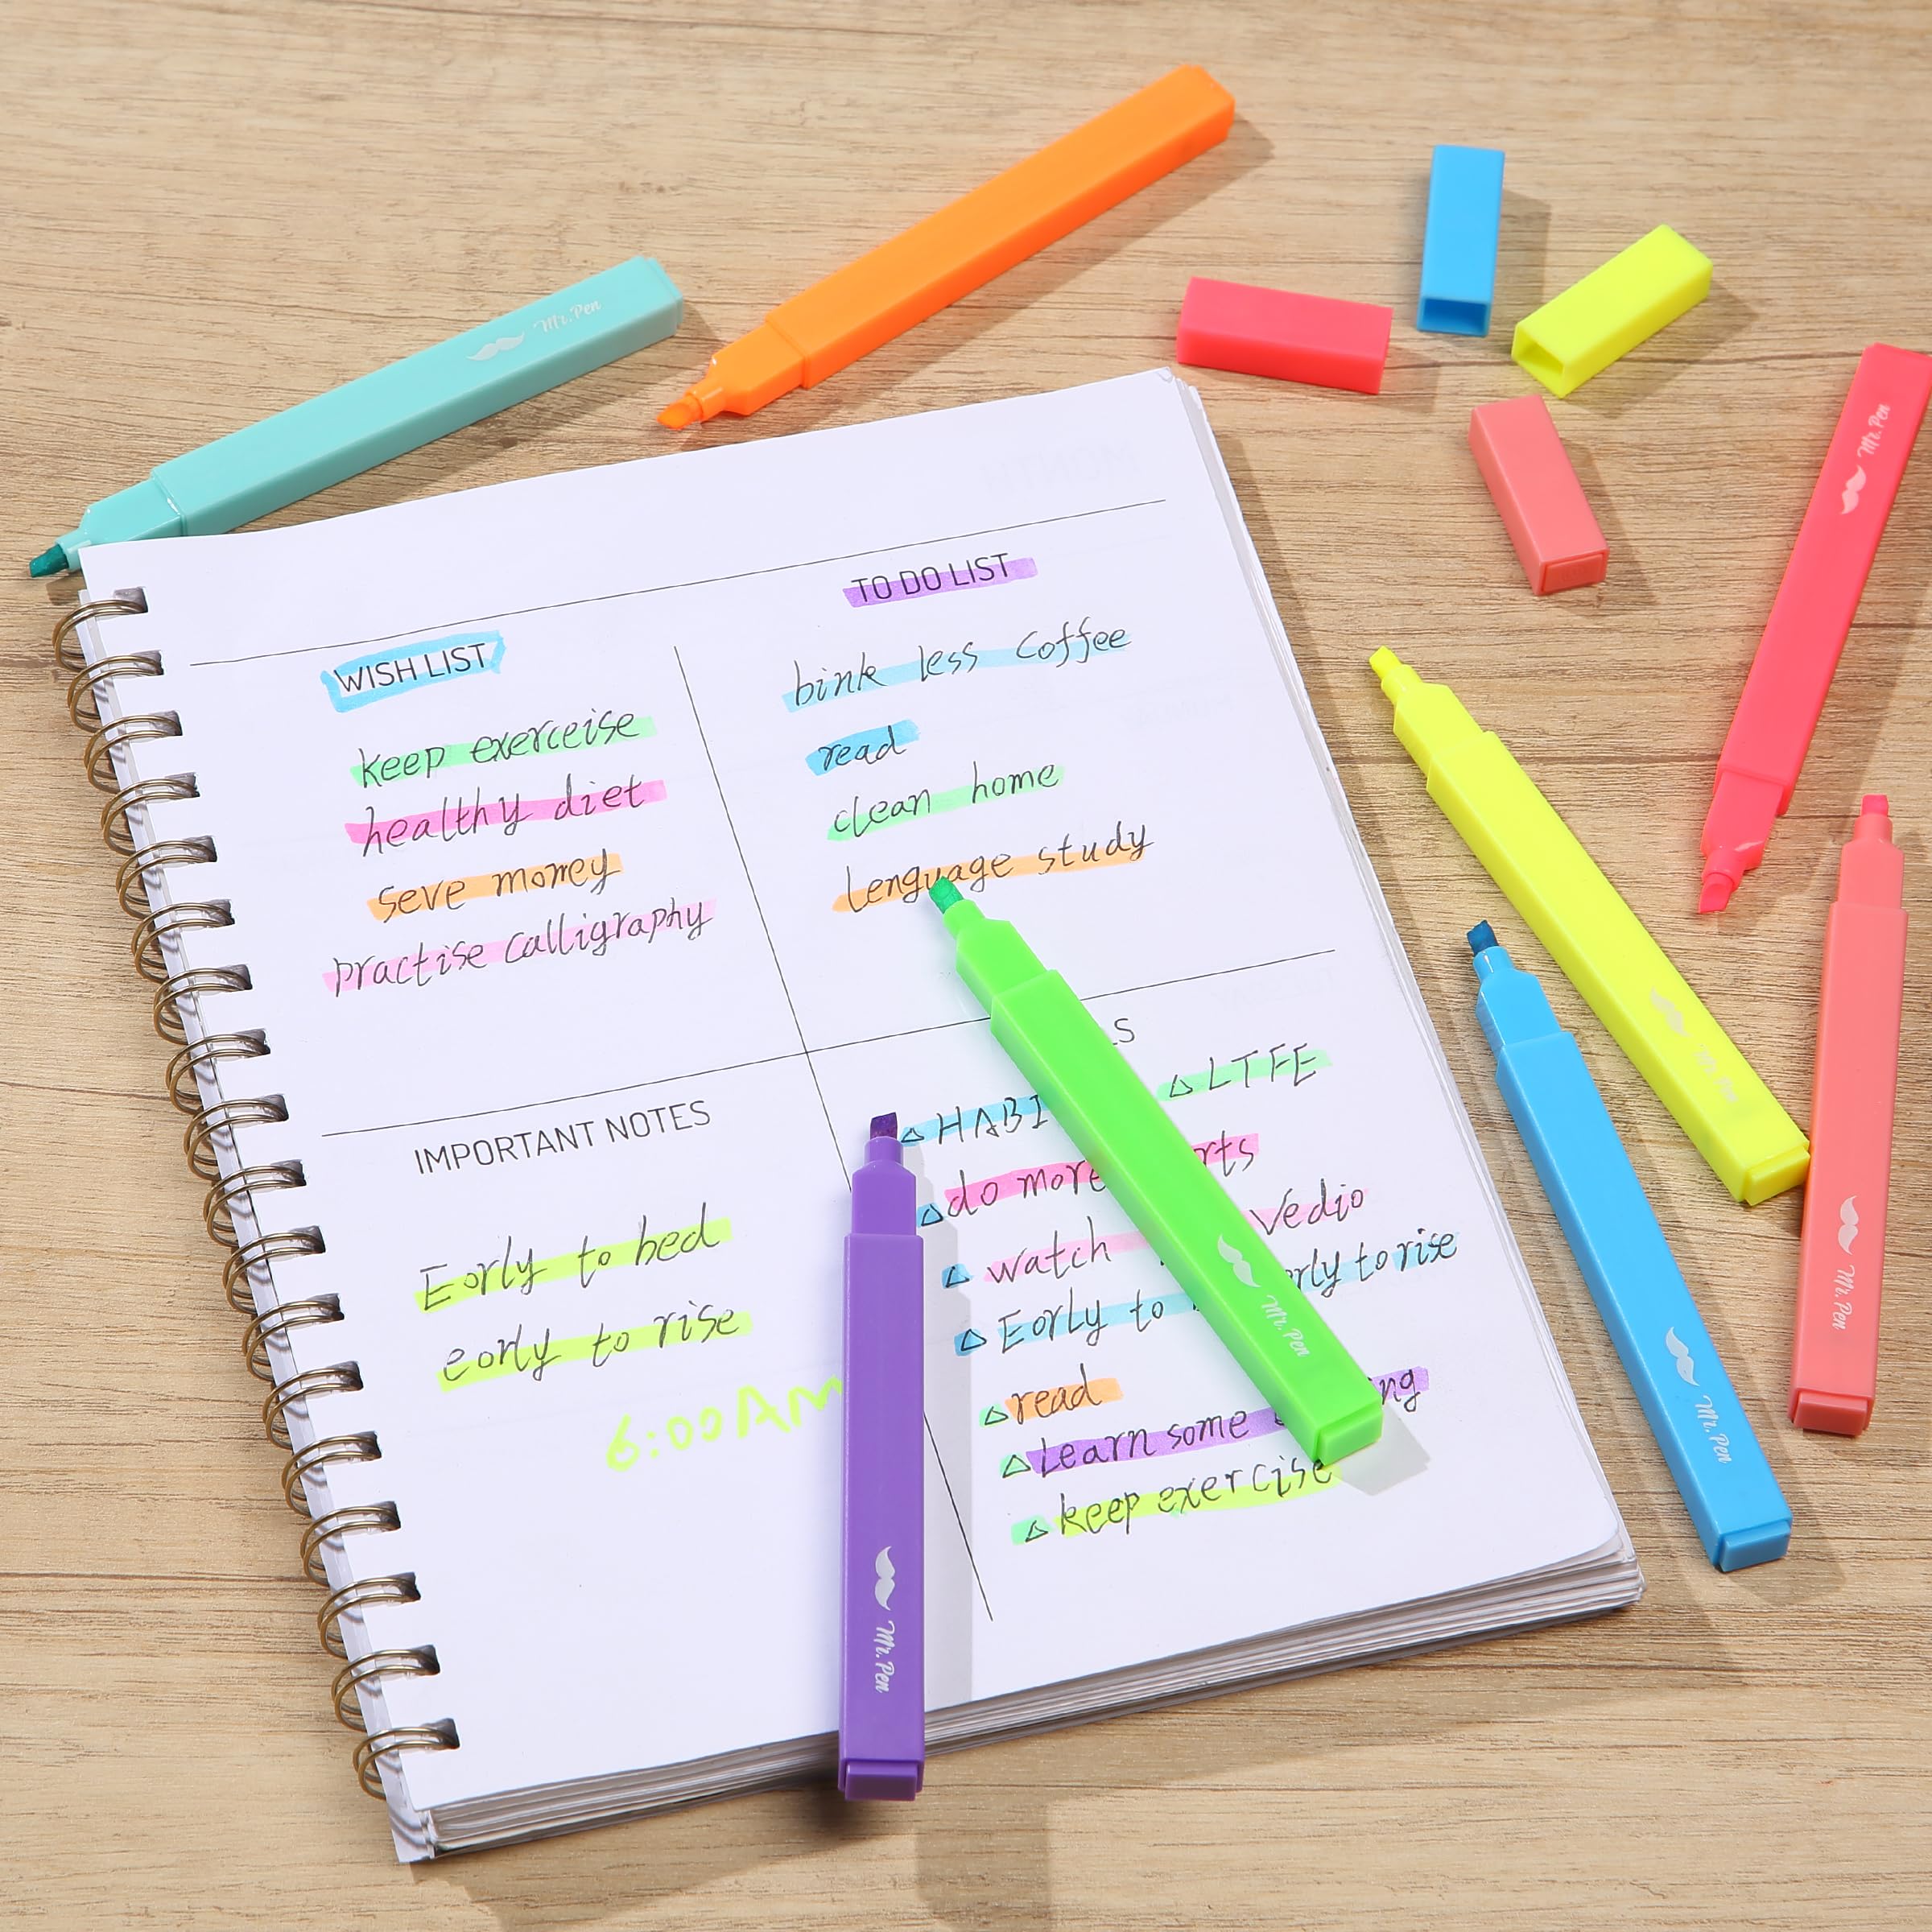 WISH LIST
keep exerceise
healthy diet
seve money
practise calligraphy
TO DO LIST
bink less coffee
read
clean home
lenguage study
IMPORTANT NOTES
Eorly to bed
eorly to rise
6:00 AM
LS
△ HABI
△ LTFE
△ do more rts
△ watch Vedio
△ Eorly to orly to rise
△ read
△ Learn some ng
△ keep exercise
Mr. Pen
Mr. Pen
Mr. Pen
Mr. Pen
Mr. Pen
Mr. Pen
Mr. Pen